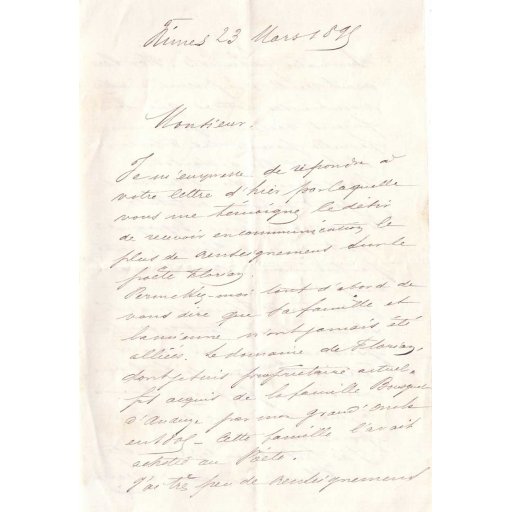 Nimes 23 Mars 1895
Monsieur.
Je m'empresse de répondre à
votre lettre d'hier par laquelle
vous me témoignez le désir
de recevoir en communication le
plus de renseignements sur le
poëte Florian.
Permettez-moi tout d'abord de
vous dire que sa famille et
la mienne n'ont jamais été
alliées. Le domaine de Florian,
dont je suis propriétaire actuel
fut acquis de la famille Bousquet
d'Anduze par mon grand'oncle
en 1801 - Cette famille l'avait
acheté au Poëte.
J'ai très peu de renseignements